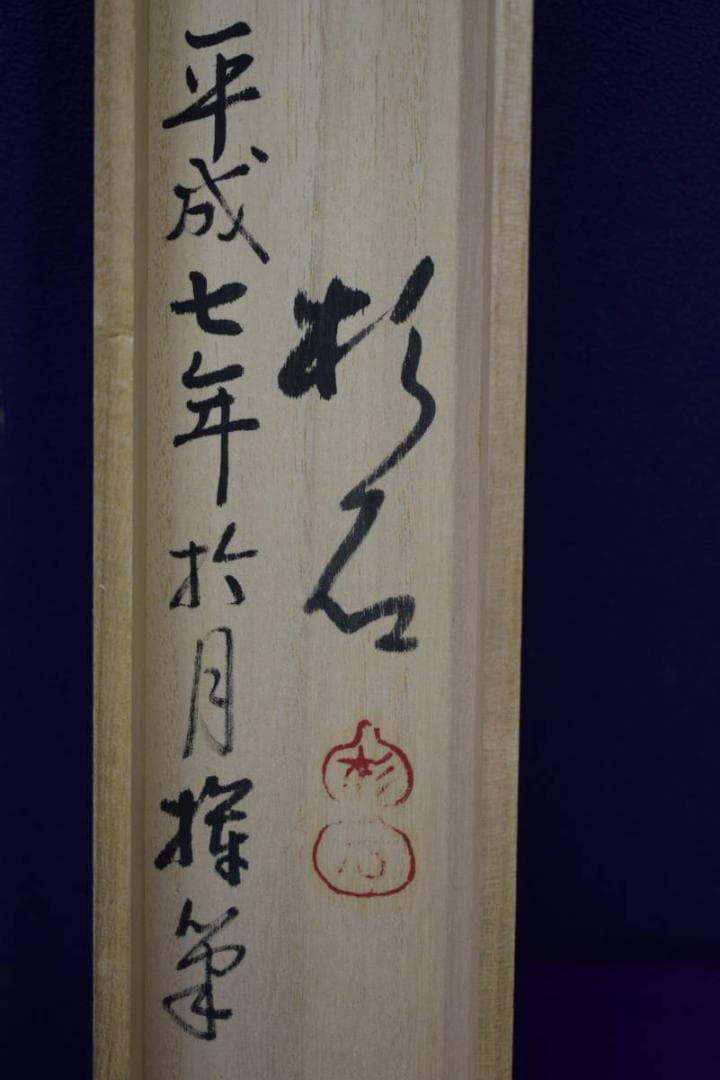 杉石
杉
石
平成七年於月揮筆